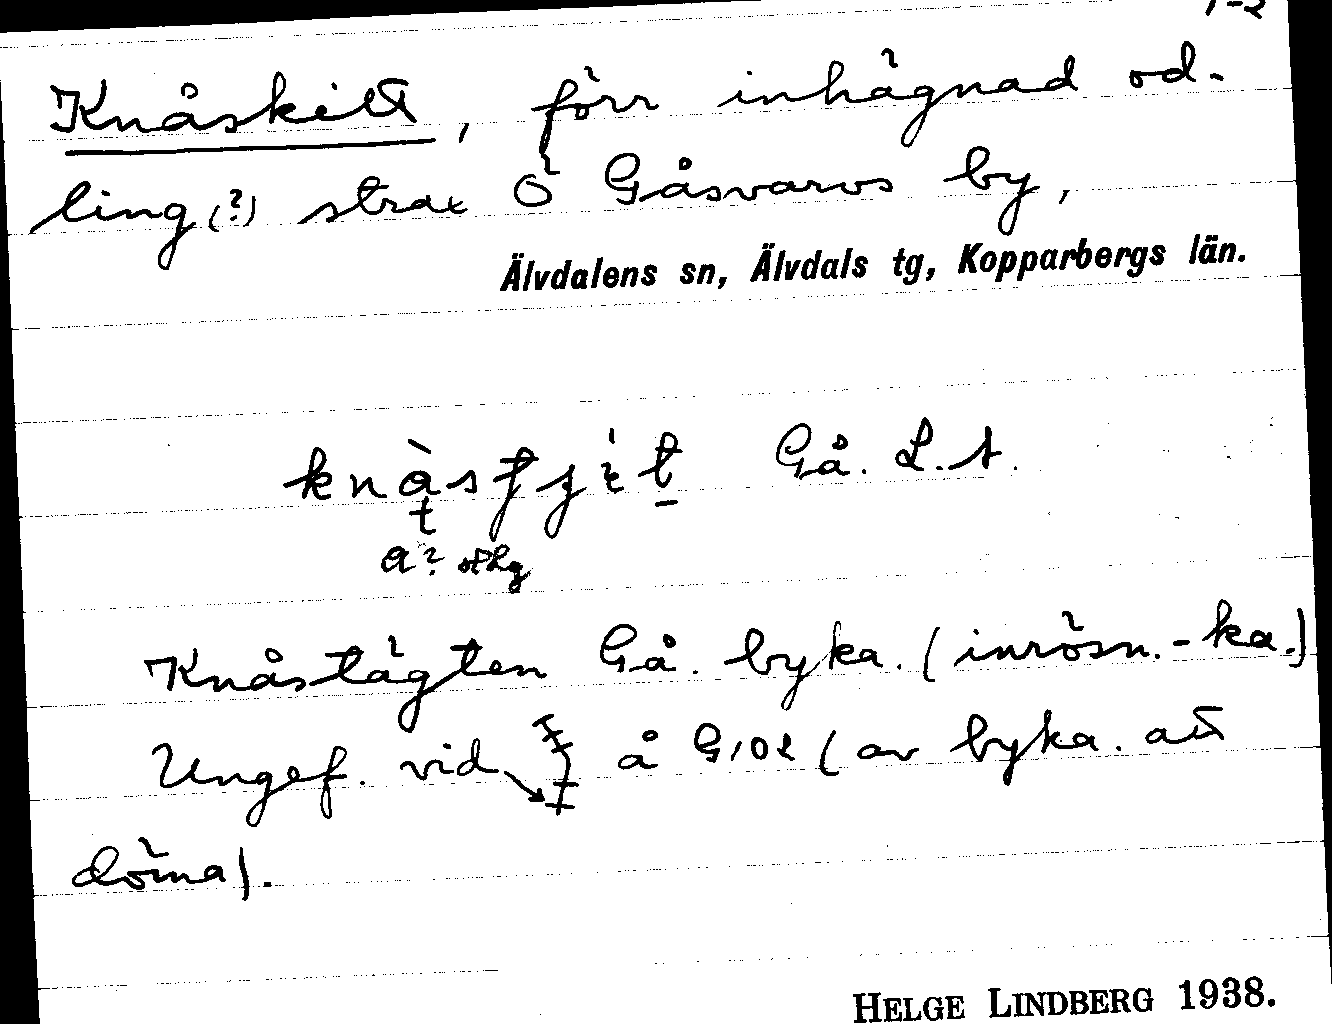 1-2
Knåskitt, förr inhägnad od-
ling(?) strax Ö Gåsvarvs by,
Älvdalens sn, Älvdals tg, Kopparbergs län.
Gå. L.A.
a?
Knåstägten Gå. byka. (inrösn.-ka.)
Ungef. vid å G102 (av byka. att
döma).
HELGE LINDBERG 1938.